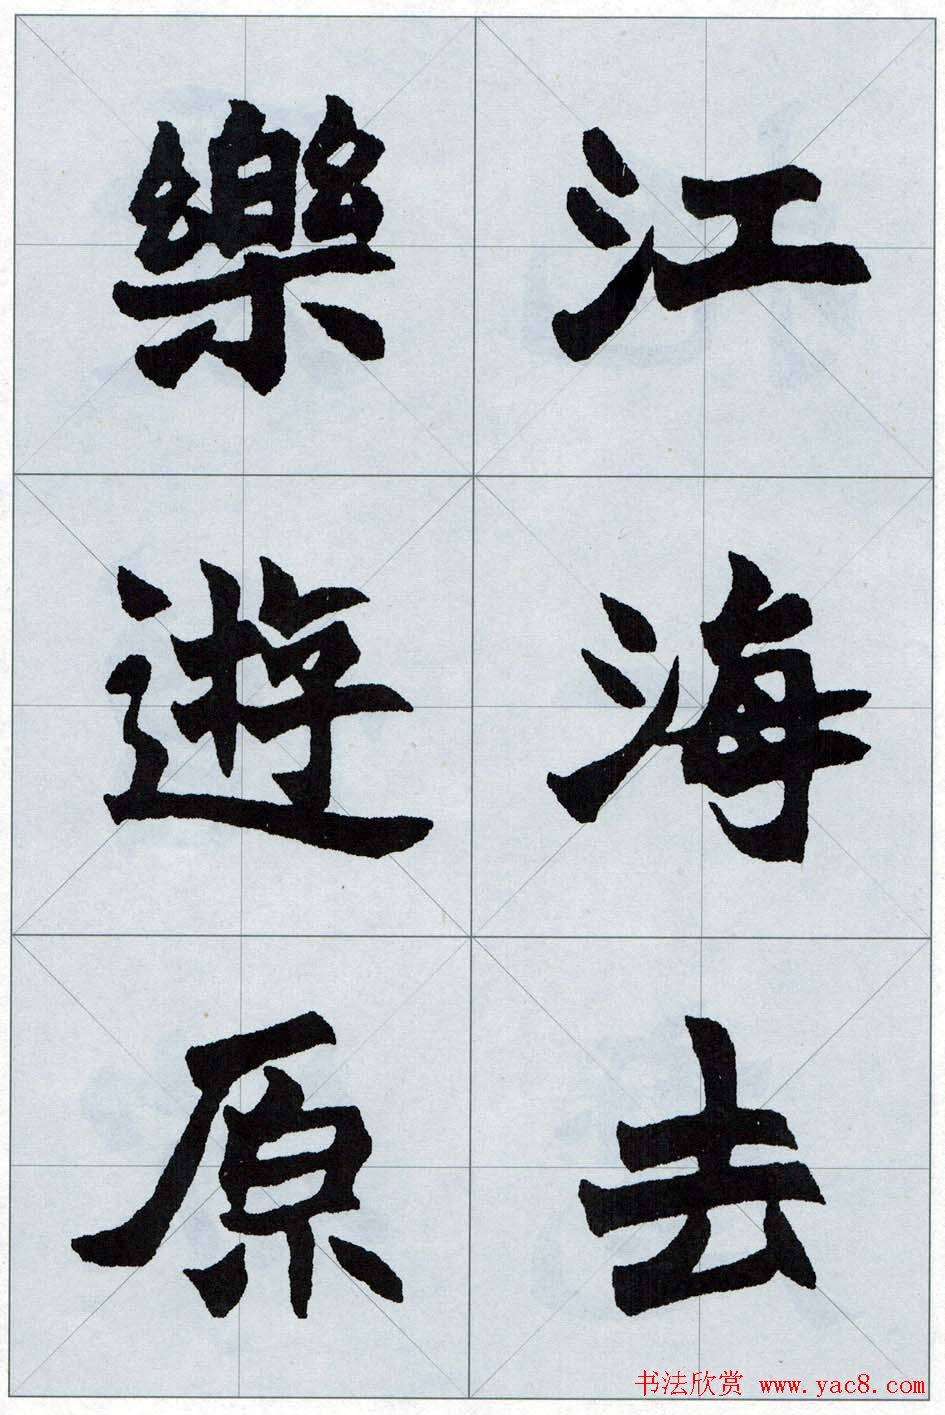 江海去
樂遊原
书法欣赏 www.yac8.com